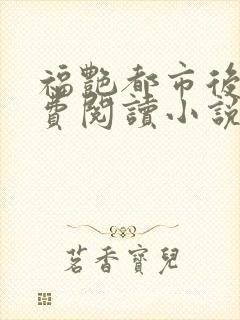 福艷都市後
費閱讀小說
茗香寶兒